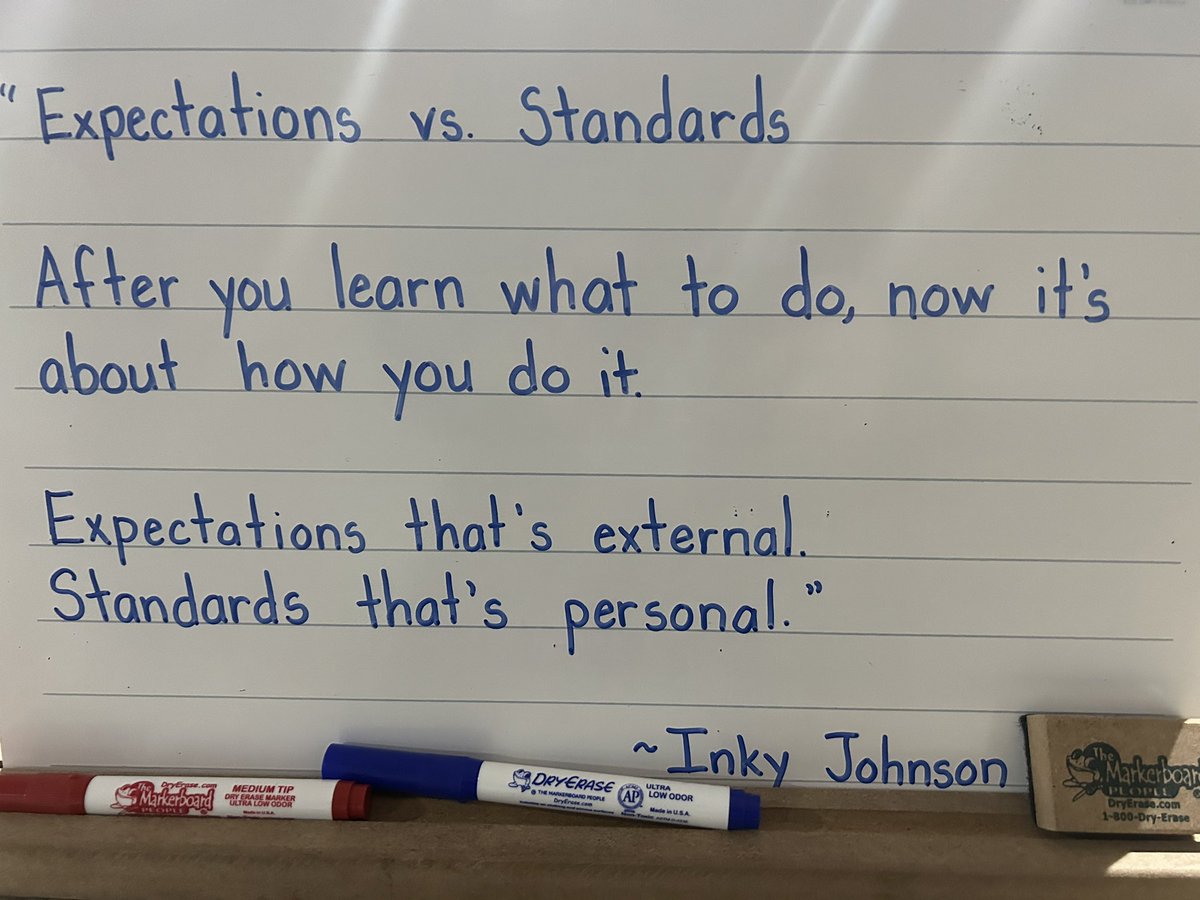 “Expectations vs. Standards
After you learn what to do, now it's
about how you do it.
Expectations that's external.
Standards that's personal.”
~Inky Johnson
DryErase.com
The Markerboard
PEOPLE
MEDIUM TIP
DRY ERASE MARKER
ULTRA LOW ODOR
Made in U.S.A.
DRYERASE
THE MARKERBOARD PEOPLE
DryErase.com
AP
Non-Toxic
ULTRA
LOW ODOR
Made in U.S.A.
The
Markerboard
PEOPLE
DryErase.com
1-800-Dry-Erase